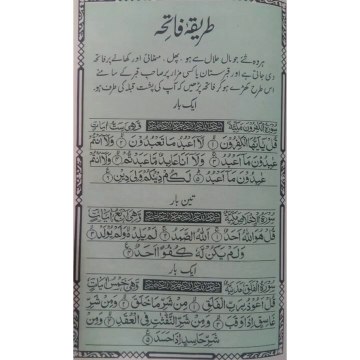 طریقۂ فاتحہ
ہر وہ شئے جو مال حلال سے ہو۔ پھل، مٹھائی اور کھانے پر فاتحہ
دی جاتی ہے اور قبرستان یا کسی مزار پر صاحب قبر کے سامنے
اس طرح کھڑے ہو کر فاتحہ پڑھیں کہ آپ کی پشت قبلہ کی طرف ہو۔
ایک بار
سُوْرَةُ الْكٰفِرُوْنَ مَكِّيَّةٌ بِسْمِ اللّٰهِ الرَّحْمٰنِ الرَّحِيْمِ وَهِيَ سِتُّ اٰيَاتٍ
قُلْ يٰٓاَيُّهَا الْكٰفِرُوْنَ ۱ لَآ اَعْبُدُ مَا تَعْبُدُوْنَ ۲ وَلَآ اَنْتُمْ
عٰبِدُوْنَ مَآ اَعْبُدُ ۳ وَلَآ اَنَا عَابِدٌ مَّا عَبَدْتُّمْ ۴ وَلَآ اَنْتُمْ
عٰبِدُوْنَ مَآ اَعْبُدُ ۵ لَكُمْ دِيْنُكُمْ وَلِيَ دِيْنِ ۶
تین بار
سُوْرَةُ الْاِخْلَاصِ مَكِّيَّةٌ بِسْمِ اللّٰهِ الرَّحْمٰنِ الرَّحِيْمِ وَهِيَ اَرْبَعُ اٰيَاتٍ
قُلْ هُوَ اللّٰهُ اَحَدٌ ۱ اَللّٰهُ الصَّمَدُ ۲ لَمْ يَلِدْ وَلَمْ يُوْلَدْ ۳
وَلَمْ يَكُنْ لَّهٗ كُفُوًا اَحَدٌ ۴
ایک بار
سُوْرَةُ الْفَلَقِ مَدَنِيَّةٌ بِسْمِ اللّٰهِ الرَّحْمٰنِ الرَّحِيْمِ وَهِيَ خَمْسُ اٰيَاتٍ
قُلْ اَعُوْذُ بِرَبِّ الْفَلَقِ ۱ مِنْ شَرِّ مَا خَلَقَ ۲ وَمِنْ شَرِّ
غَاسِقٍ اِذَا وَقَبَ ۳ وَمِنْ شَرِّ النَّفّٰثٰتِ فِي الْعُقَدِ ۴ وَمِنْ
شَرِّ حَاسِدٍ اِذَا حَسَدَ ۵